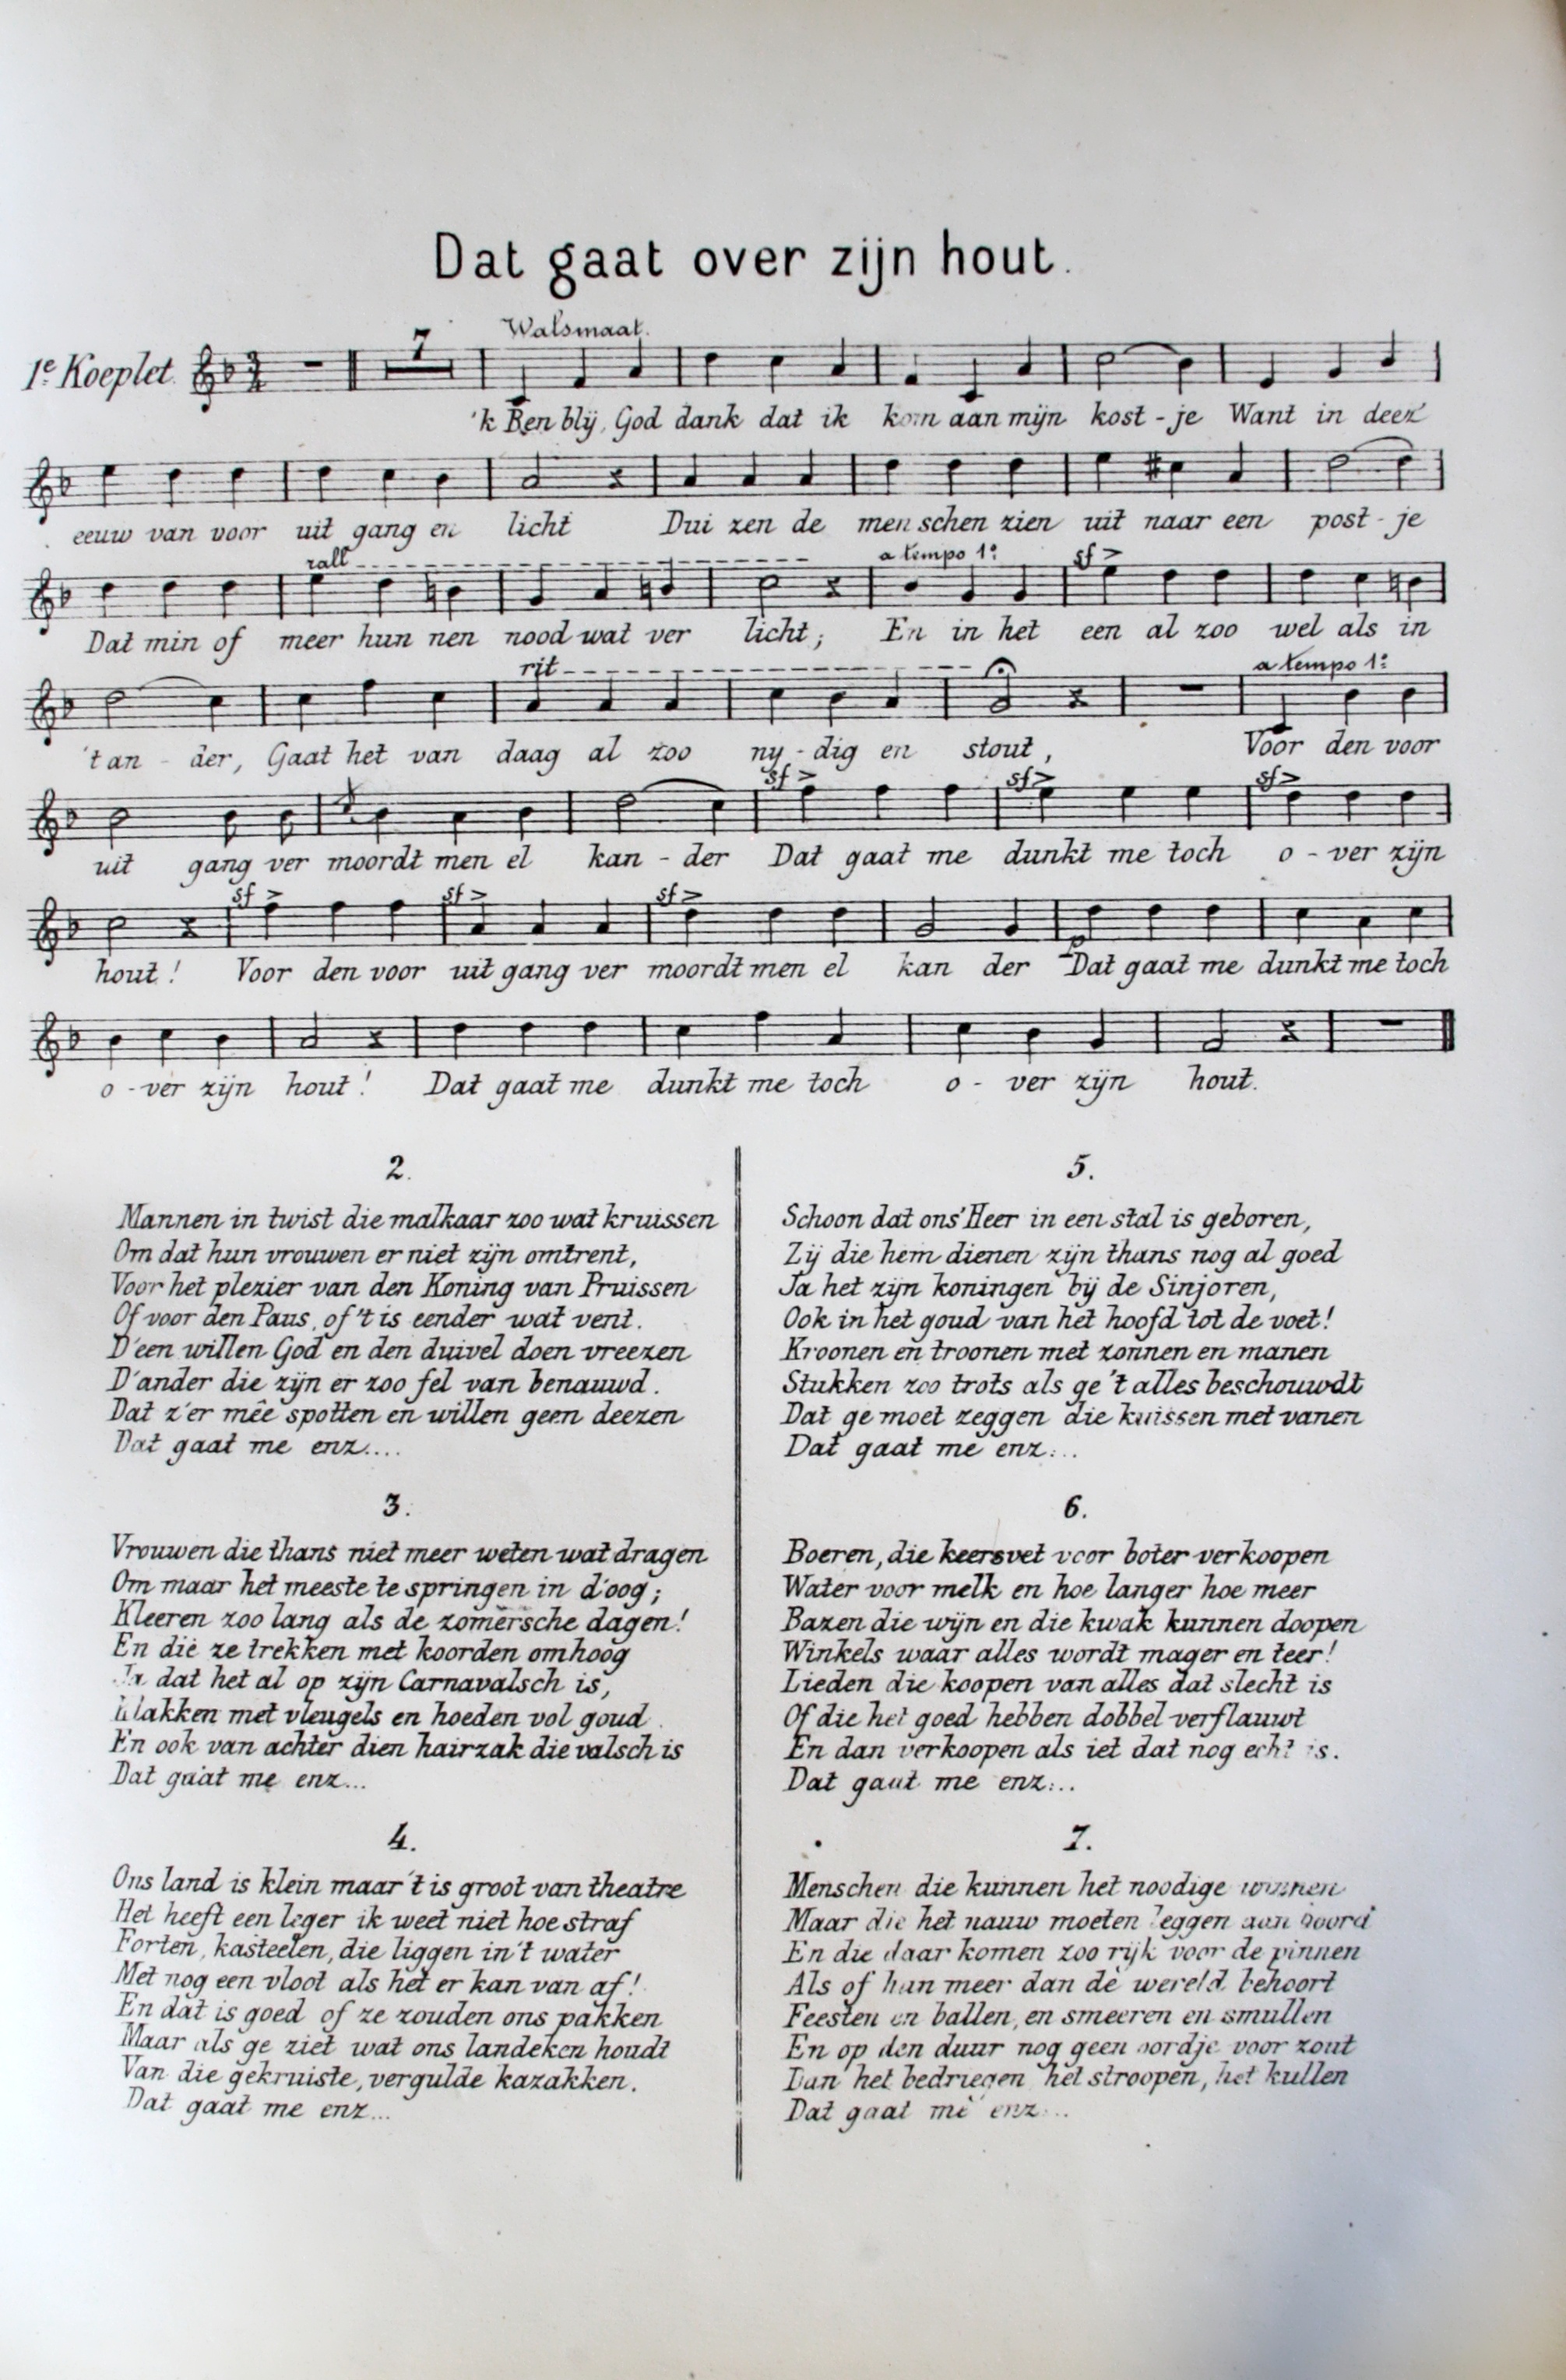 Dat gaat over zijn hout.
Walsmaat.
1e Koeplet.
7
'k Ben blij, God dank dat ik kom aan mijn kost - je Want in deez'
eeuw van voor uit gang en licht Dui zen de men schen zien uit naar een post - je
rall a tempo 1o sf
Dat min of meer hun nen nood wat ver licht; En in het een al zoo wel als in
rit a tempo 1o
't an - der, Gaat het van daag al zoo ny - dig en stout, Voor den voor
sf sf sf
uit gang ver moordt men el kan - der Dat gaat me dunkt me toch o - ver zijn
sf sf sf
hout! Voor den voor uit gang ver moordt men el kan der Dat gaat me dunkt me toch
o - ver zijn hout! Dat gaat me dunkt me toch o - ver zijn hout.
2.
Mannen in twist die malkaar zoo wat kruissen
Om dat hun vrouwen er niet zijn omtrent,
Voor het plezier van den Koning van Pruissen
Of voor den Paus, of 't is eender wat vent.
D'een willen God en den duivel doen vreezen
D'ander die zijn er zoo fel van benauwd.
Dat z'er mêe spotten en willen geen deezen
Dat gaat me enz....
3.
Vrouwen die thans niet meer weten wat dragen
Om maar het meeste te springen in d'oog;
Kleeren zoo lang als de zomersche dagen!
En die ze trekken met koorden omhoog
Ja dat het al op zijn Carnavalsch is,
Klakken met vleugels en hoeden vol goud.
En ook van achter dien hairzak die valsch is
Dat gaat me enz...
4.
Ons land is klein maar 't is groot van theatre
Het heeft een leger ik weet niet hoe straf
Forten, kasteelen, die liggen in 't water
Met nog een vloot als het er kan van af!
En dat is goed of ze zouden ons pakken
Maar als ge ziet wat ons landeken houdt
Van die gekruiste, vergulde kazakken.
Dat gaat me enz...
5.
Schoon dat ons' Heer in een stal is geboren,
Zij die hem dienen zijn thans nog al goed
Ja het zijn koningen bij de Sinjoren,
Ook in het goud van het hoofd tot de voet!
Kroonen en troonen met zonnen en manen
Stukken zoo trots als ge 't alles beschouwdt
Dat ge moet zeggen die kuissen met vanen
Dat gaat me enz...
6.
Boeren, die keersvet voor boter verkoopen
Water voor melk en hoe langer hoe meer
Bazen die wijn en die kwak kunnen doopen
Winkels waar alles wordt mager en teer!
Lieden die koopen van alles dat slecht is
Of die het goed hebben dobbel verflauwt
En dan verkoopen als iet dat nog echt is.
Dat gaat me enz...
7.
Menschen die kunnen het noodige winnen
Maar die het nauw moeten leggen aan boord
En die daar komen zoo rijk voor de pinnen
Als of hun meer dan de wereld behoort
Feesten en ballen, en smeeren en smullen
En op den duur nog geen oordje voor zout
Dan het bedriegen het stroopen, het kullen
Dat gaat me enz...